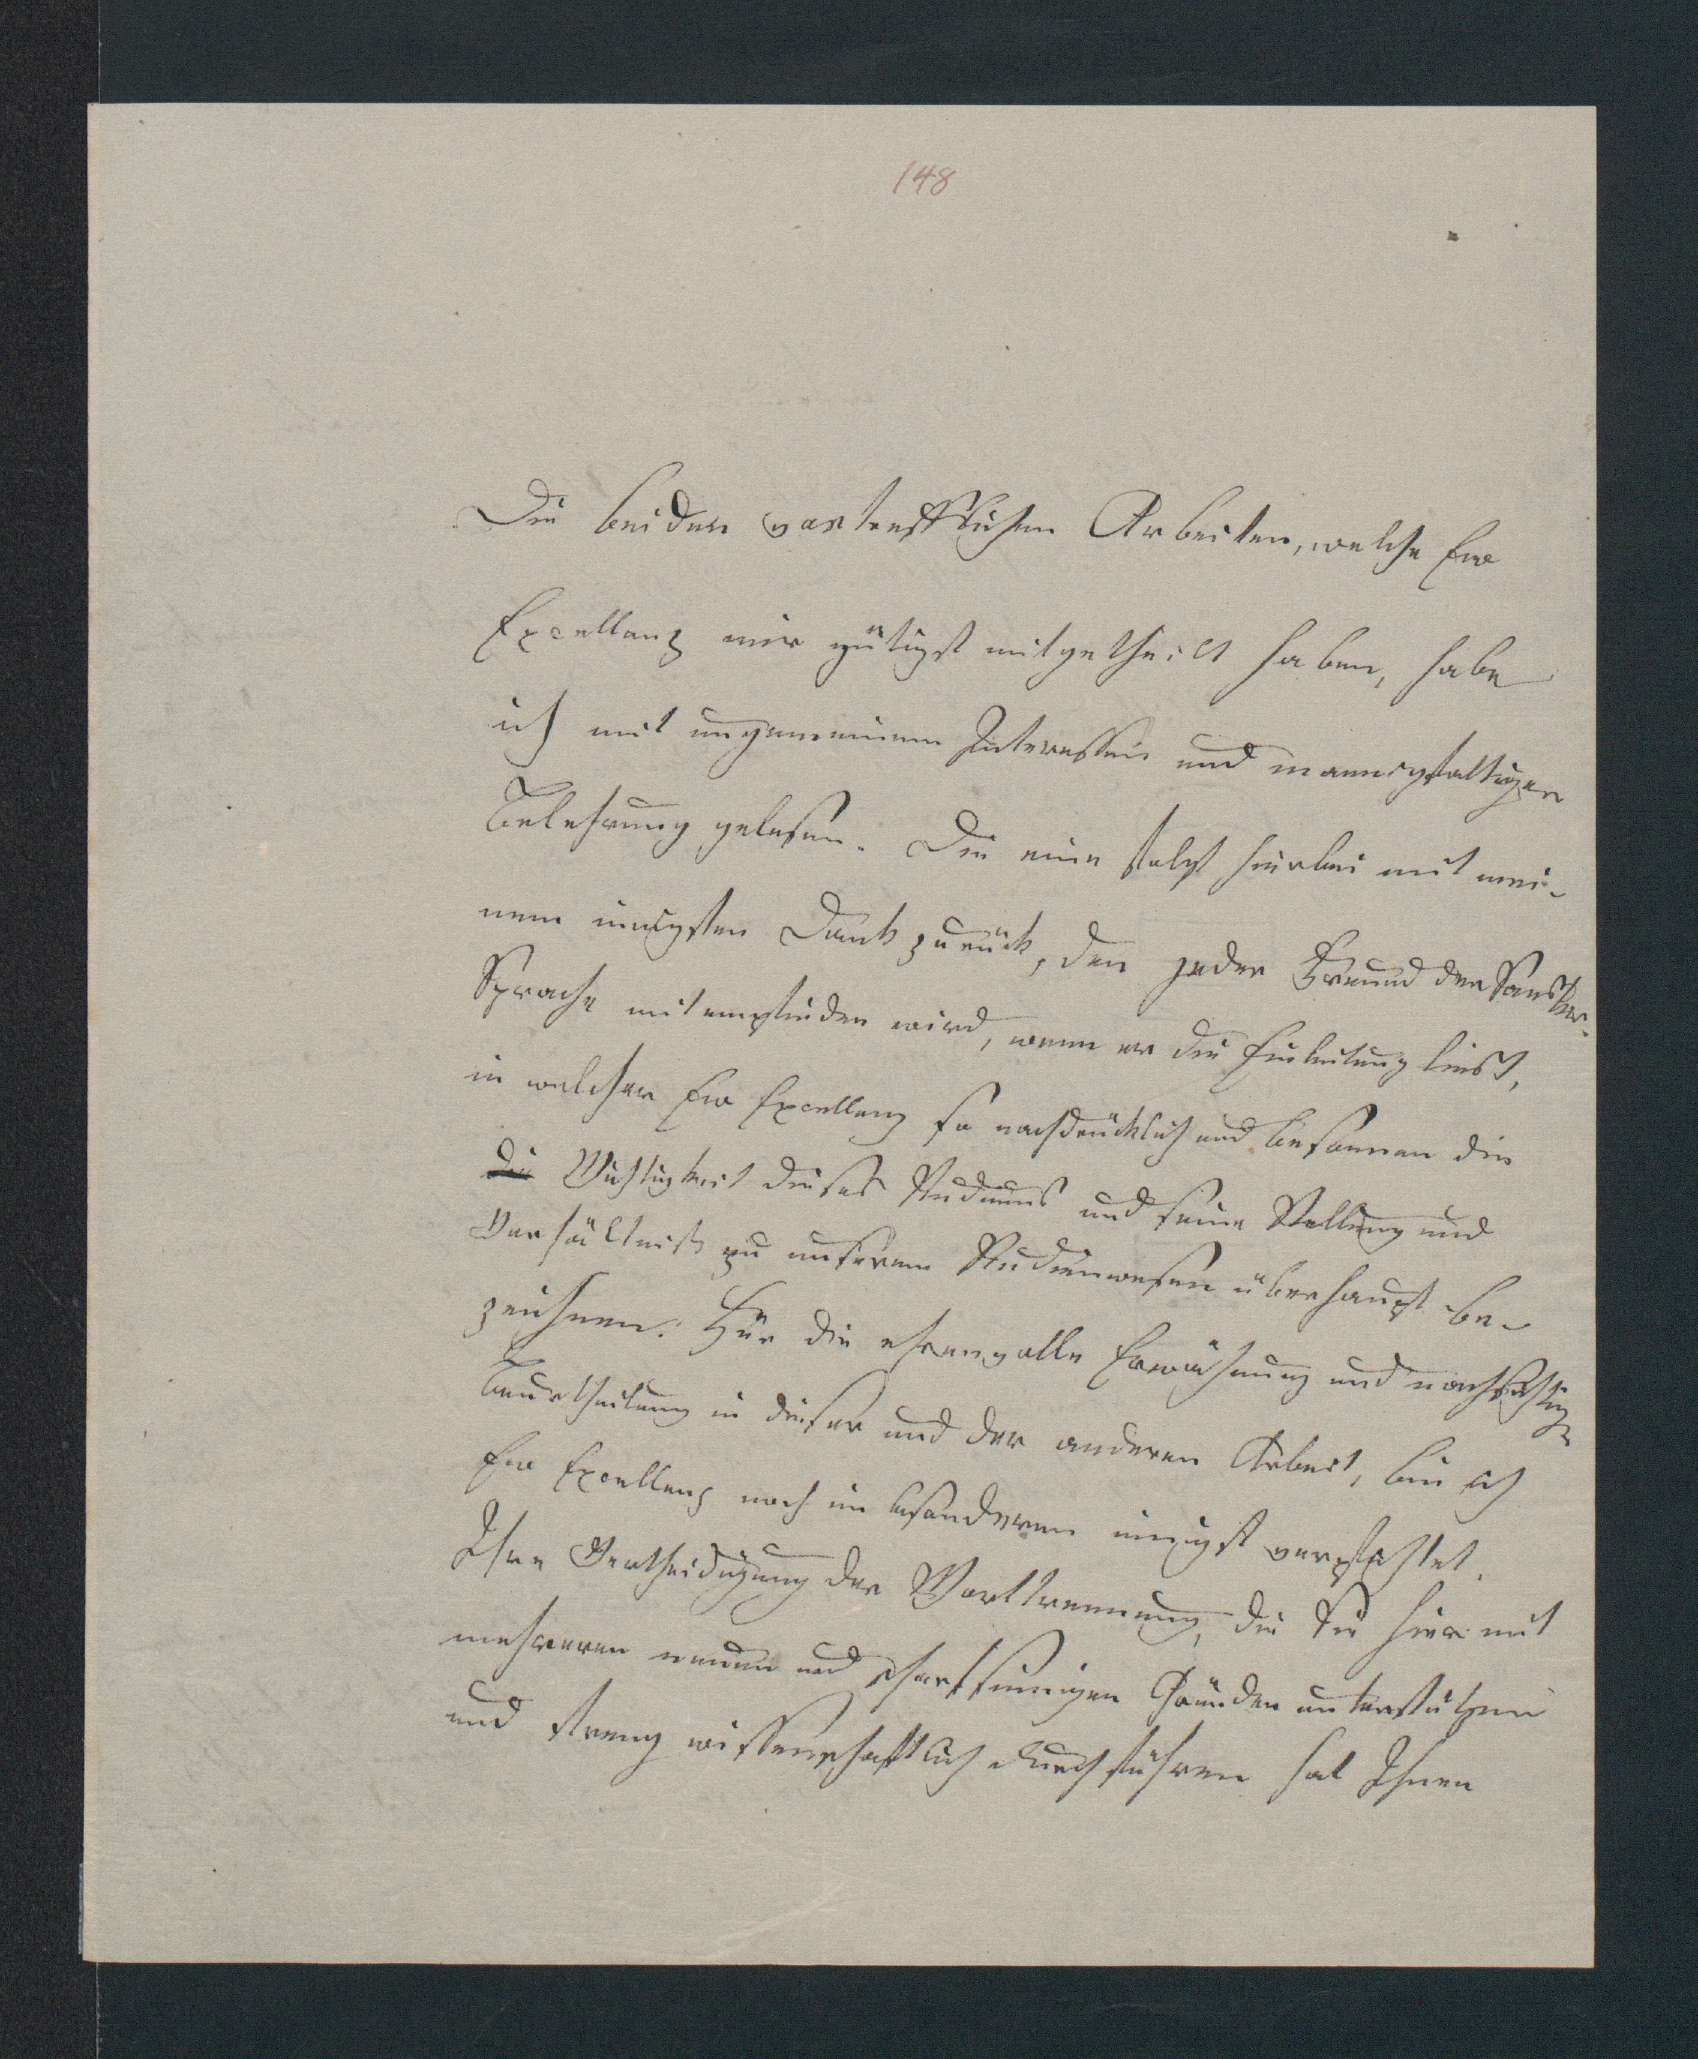 148
Die beiden vortrefflichen Arbeiten, welche Ew
Excellenz mir gütigst mitgetheilt haben, habe
ich mit ungemeinem Interesse und mannigfaltiger
Belehrung gelesen. Die eine folgt hierbei mit mei-
nem innigsten Dank zurück, den jeder Freund der Sanskr.
Sprache mitempfinden wird, wenn er die Einleitung liest,
in welcher Ew Excellenz so nachdrücklich und besonnen die
die Wichtigkeit dieses Studiums und seine Stellung und
Verhältniß zu unserem Studienwesen überhaupt be-
zeichnen. Für die ehrenvolle Erwähnung und nachsichtige
Beurtheilung in dieser und der anderen Arbeit, bin ich
Ew Excellenz noch im besonderen innigst verpflichtet.
Ihre Vertheidigung der Worttrennung, die Sie hier mit
mehreren neuen und scharfsinnigen Gründen unterstützen
und streng wissenschaftlich durchführen hat Ihnen